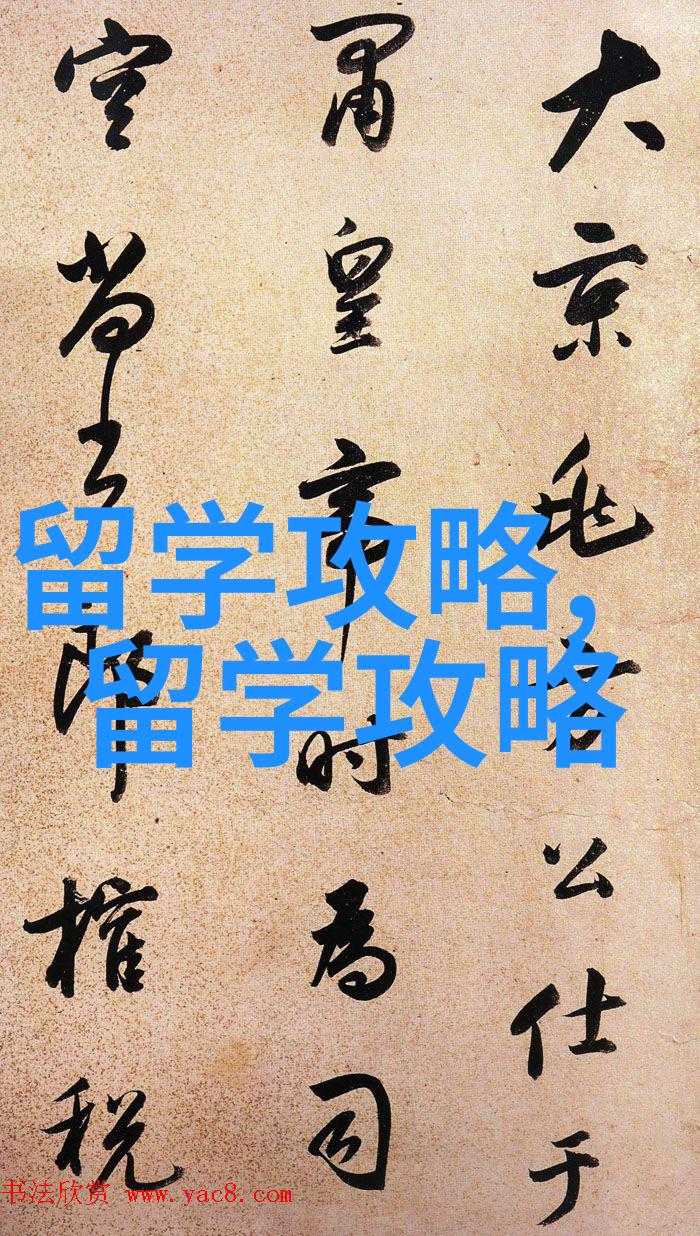 留学攻略,
留学攻略
大京兆公仕于
肅皇帝时為司
空尚书郎榷税
书法欣赏 www.yac8.com